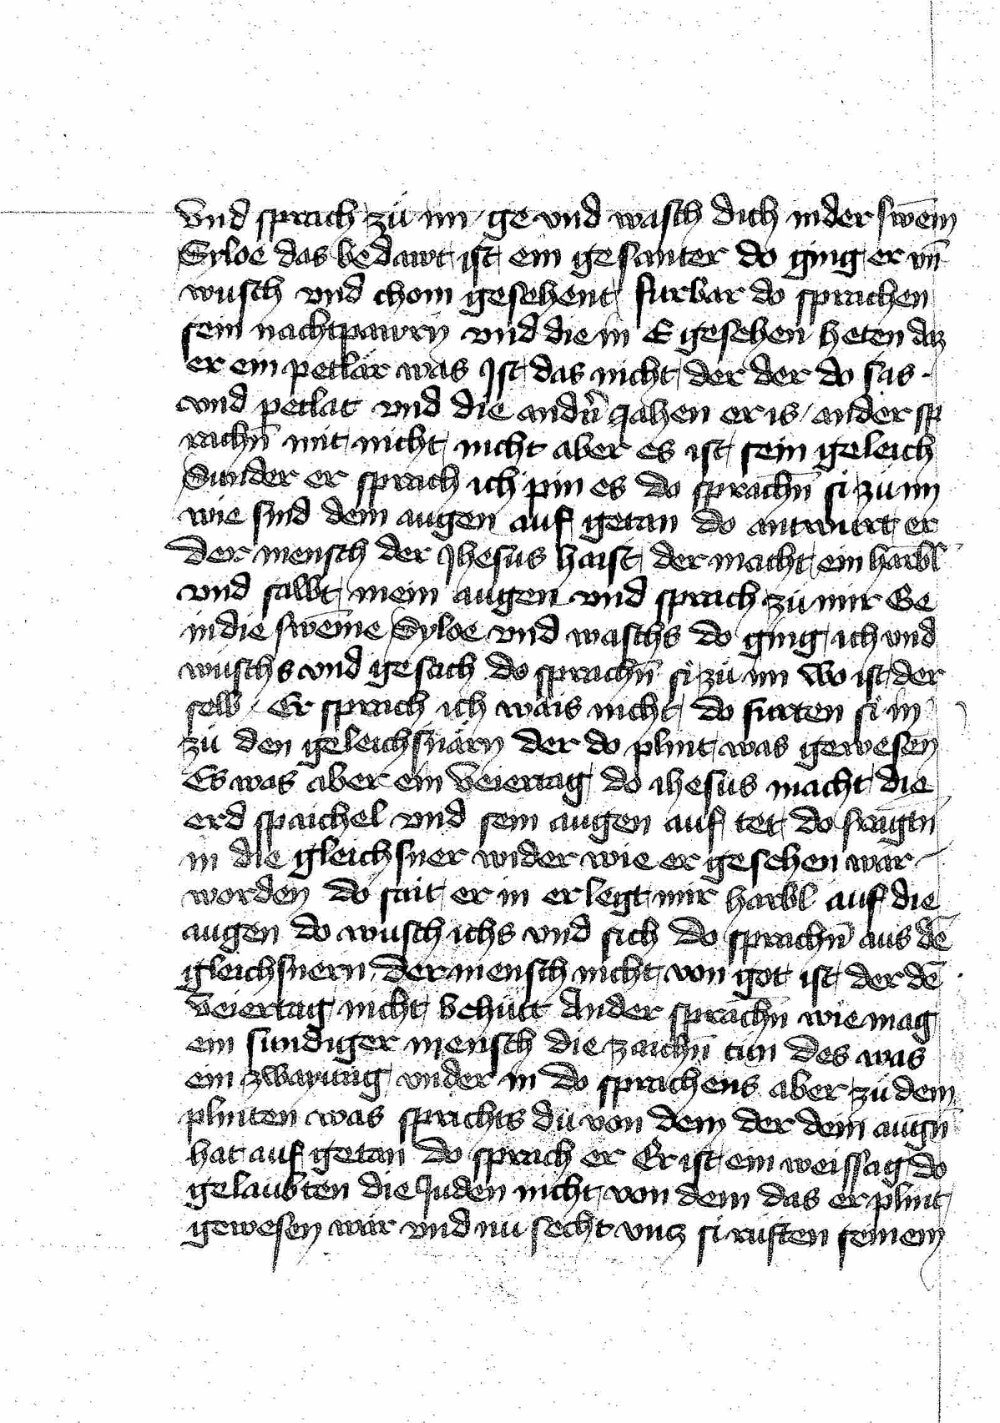 vnd sprach zu im ge vnd wasch dich in der swem̄
Syloe das bedawt ist ein gesanter do ging er vn̄
wusch vnd chom gesehent furbar do sprachen
sein nachtpawrn vnd die in E gesehen heten daz
er ein petlär was Ist das nicht der der do sas
vnd petlat vnd die andn̄ Jahen er is ander sp
rachn̄ mit nicht nicht aber es ist sein geleich
Sunder er sprach ich pin es do sprachn̄ si zu im
wie sind dein augen auf getan do antwurt er
der mensch der Jhesus haist der macht ein harbl
vnd salbt mein augen vnd sprach zu mir Ge
in die sweme Syloe vnd waschs do ging ich vnd
wuschs vnd gesach do sprachn̄ si zu im wo ist der
selb Er sprach ich wais nicht do furten si in
zu den geleichsnärn der do plint was gewesen
Es was aber ein veiertag do ihesus macht die
erd spaichel vnd sein augen auf tet do fragtn
in die gleichsner wider wie er gesehen war
worden do sait er in er legt mir harbl auf die
augen do wusch ichs vnd sich do sprachn̄ aus dē
gleichsnern der mensch nicht von got ist der dē
veiertag nicht behutt Ander sprachn̄ wie mag
ein sundiger mensch die zaichn̄ tun des was
ein zwayung vnder in do sprachens aber zu dem
plinten was sprichts du von dem der dein augn̄
hat auf getan do sprach er Er ist ein weissag do
gelaubten die Juden nicht von dem das er plint
gewesen wär vnd nu secht vncz si ruften seinem